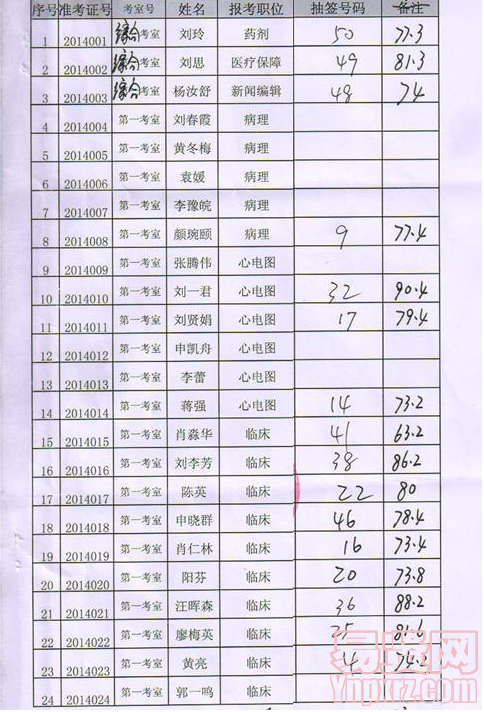 序号 准考证号 考室号 姓名 报考职位 抽签号码 备注
1 2014001 综合考室 刘玲 药剂 50 77.3
2 2014002 综合考室 刘思 医疗保障 49 81.3
3 2014003 综合考室 杨汝舒 新闻编辑 48 74
4 2014004 第一考室 刘春霞 病理
5 2014005 第一考室 黄冬梅 病理
6 2014006 第一考室 袁媛 病理
7 2014007 第一考室 李豫皖 病理
8 2014008 第一考室 颜琬颐 病理 9 77.4
9 2014009 第一考室 张腾伟 心电图
10 2014010 第一考室 刘一君 心电图 32 90.4
11 2014011 第一考室 刘贤娟 心电图 17 79.4
12 2014012 第一考室 申凯舟 心电图
13 2014013 第一考室 李蕾 心电图
14 2014014 第一考室 蒋强 心电图 14 73.2
15 2014015 第一考室 肖淼华 临床 41 63.2
16 2014016 第一考室 刘李芳 临床 38 86.2
17 2014017 第一考室 陈英 临床 22 80
18 2014018 第一考室 申晓群 临床 46 78.4
19 2014019 第一考室 肖仁林 临床 16 73.4
20 2014020 第一考室 阳芬 临床 20 73.8
21 2014021 第一考室 汪晖森 临床 36 88.2
22 2014022 第一考室 廖梅英 临床 35 81.6
23 2014023 第一考室 黄亮 临床 4 74.2
24 2014024 第一考室 郭一鸣 临床
Ynpxrz.com